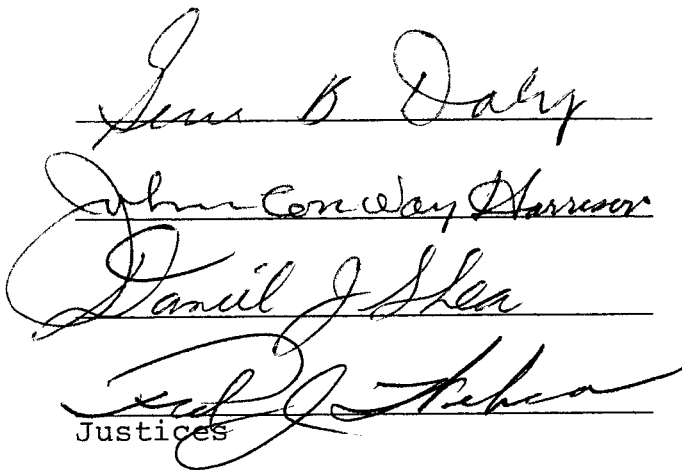 Gene B Daly
John Conway Harrison
Daniel J Shea
Fred J Weber
Justices